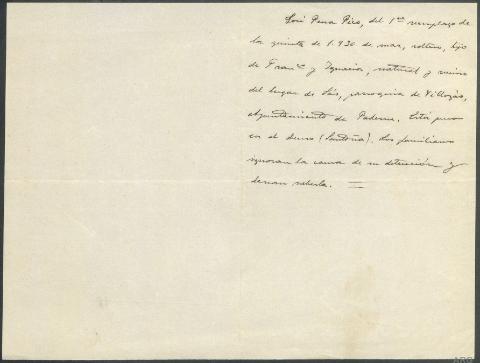 José Pena Pico, del 1er reemplazo de
la quinta de 1.930 de mar, soltero, hijo
de Franco y Ignacia, natural y vecino
del lugar de Sás, parroquia de Villozás,
Ayuntamiento de Paderne. Está preso
en el Dueso (Santoña). Los familiares
ignoran la causa de su detención y
desean saberla.